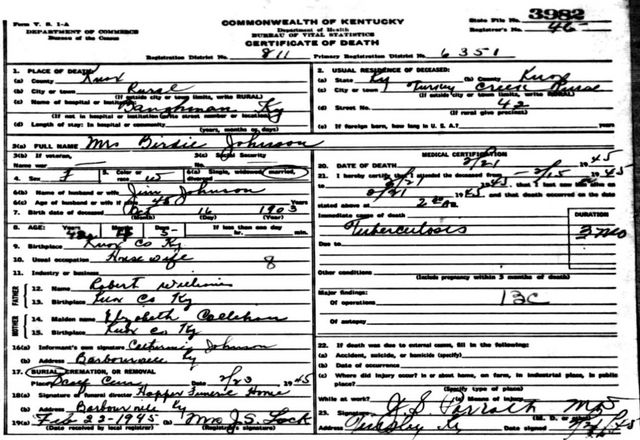 Form V. S. 1-A
DEPARTMENT OF COMMERCE
Bureau of the Census
COMMONWEALTH OF KENTUCKY
Department of Health
BUREAU OF VITAL STATISTICS
CERTIFICATE OF DEATH
State File No. 3982
Registrar's No. 46
Registration District No. 811 Primary Registration District No. 6351
1. PLACE OF DEATH
(a) County Knox
(b) City or town Rural
(If outside city or town limits, write RURAL)
(c) Name of hospital or institution Baughman, Ky
(If not in hospital or institution write street number or location)
(d) Length of stay: In hospital or community
(years, months or days)
2. USUAL RESIDENCE OF DECEASED:
(a) State Ky (b) County Knox
(c) City or town Turkey Creek Rural
(If outside city or town limits, write RURAL)
(d) Street No. 42
(If rural give precinct)
(e) If foreign born, how long in U. S. A.? years
3(a) FULL NAME Mrs Birdie Johnson
3(b) If veteran, name war 3(c) Social Security No.
4. Sex F 5. Color or race W 6(a) Single, widowed, married, divorced
6(b) Name of husband or wife Jim Johnson
6(c) Age of husband or wife if alive 48 Years
7. Birth date of deceased Oct 16 1903
(Month) (Day) (Year)
8. AGE: Years Months Days If less than one day
hr. min.
9. Birthplace Knox Co Ky
10. Usual occupation House wife 8
11. Industry or business
FATHER
12. Name Robert Williams
13. Birthplace Knox Co Ky
MOTHER
14. Maiden name Elizabeth Callahan
15. Birthplace Knox Co Ky
16(a) Informant's signature Johnson
(b) Address Barbourville Ky
17. BURIAL, CREMATION, OR REMOVAL
Place Cem Date 2/23 1945
18(a) Signature of funeral director Hopper Funeral Home
(b) Address Barbourville Ky
19(a) Feb 22-1945 Mrs J.S. Lock
(Date received by local registrar) (Registrar's signature)
MEDICAL CERTIFICATION
20. DATE OF DEATH 2/21 1945
21. I hereby certify that I attended the deceased from 2/15 1945
to 2/21 1945, that I last saw him alive on
2/21 1945 and that death occurred on the date
stated above at
Immediate cause of death DURATION
Tuberculosis 3 mo
Due to
Other conditions
(Include pregnancy within 3 months of death)
Major findings:
Of operations 13C
Of autopsy
22. If death was due to external causes, fill in the following:
(a) Accident, suicide, or homicide (specify)
(b) Date of occurrence
(c) Where did injury occur? in or about home, on farm, in industrial place, in public place?
(Specify type of place)
While at work? (e) Means of injury
23. Signature J S Parrott MD
(M. D. or other)
Address Ky